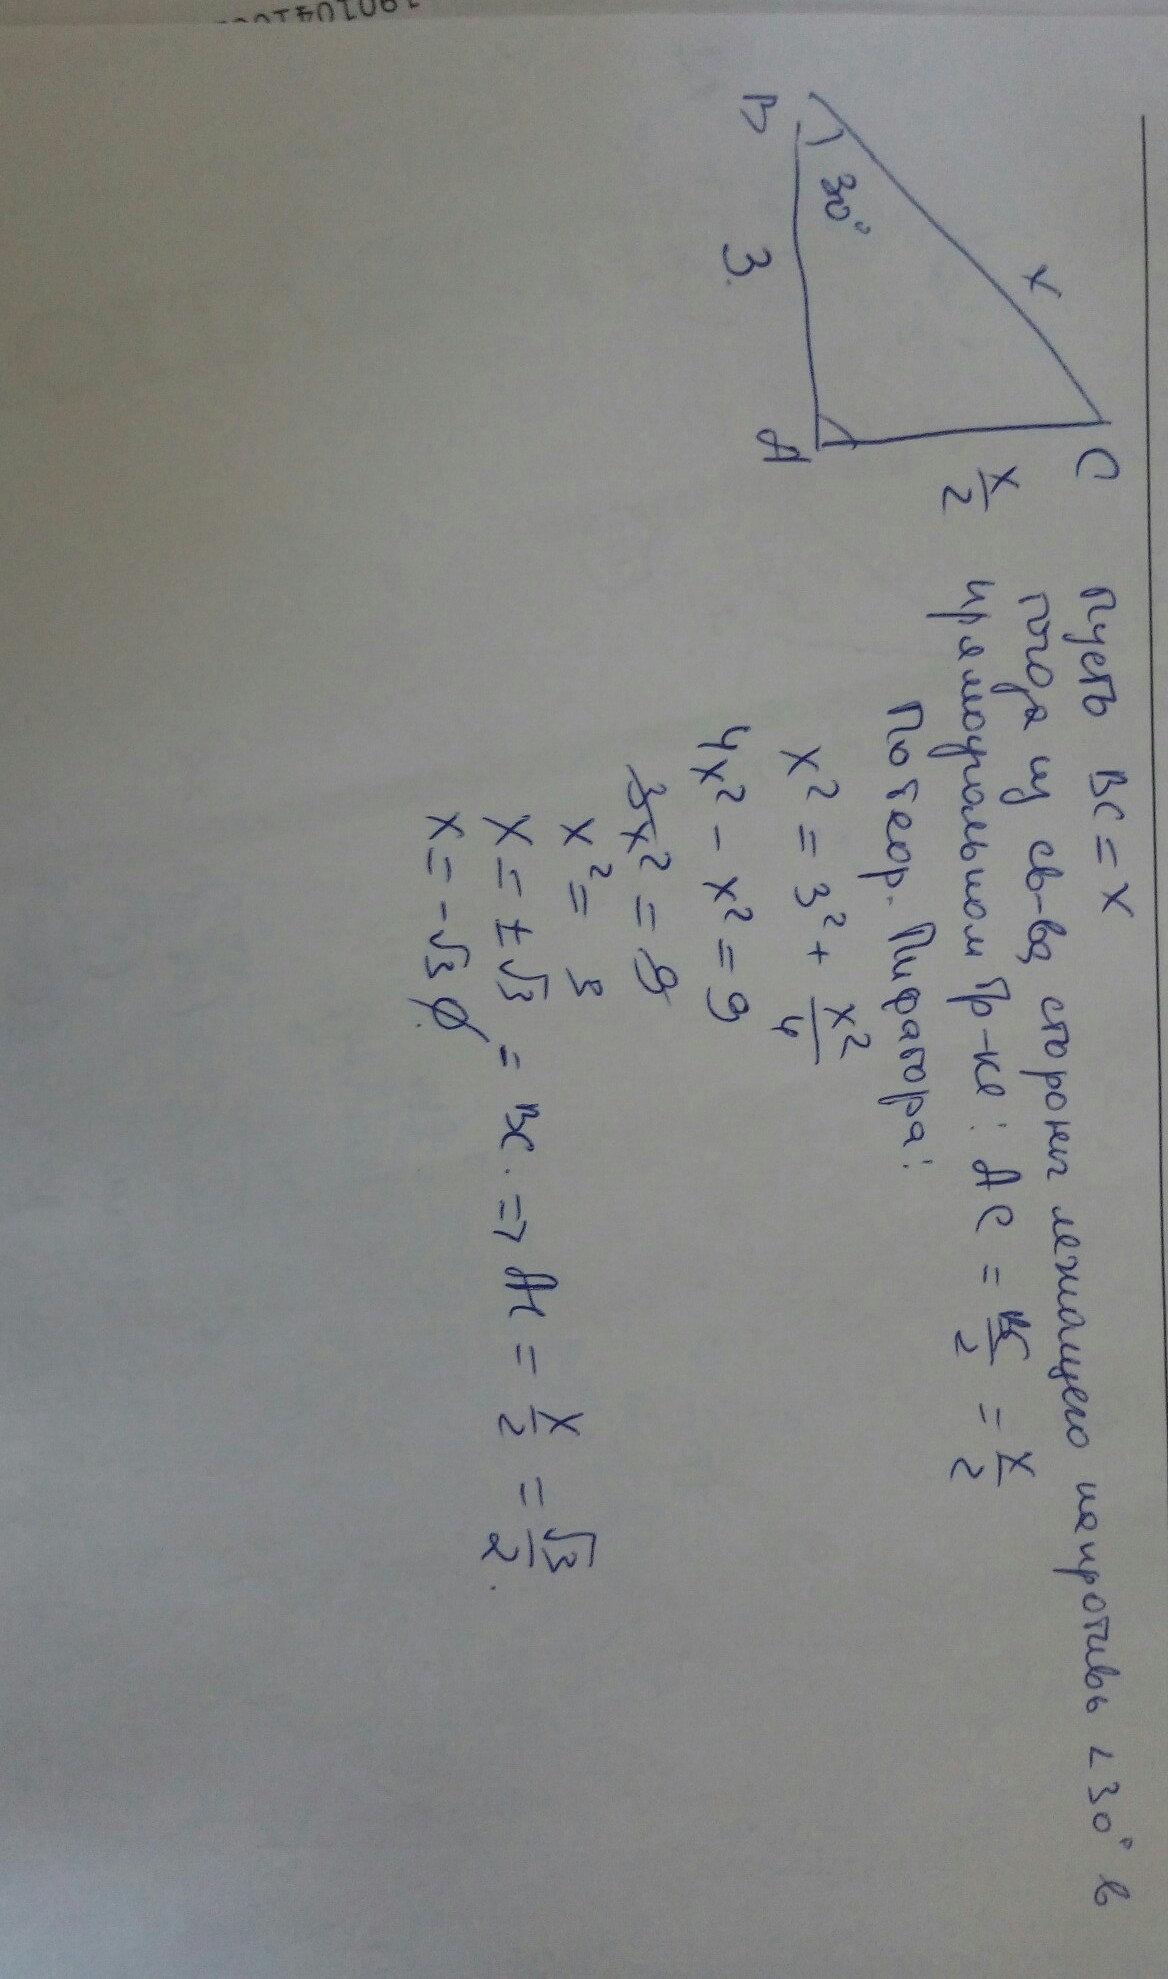 B
30°
3
A
x
C
x/2
Пусть BC = x
тогда из св-ва стороны лежащего напротивь ∠30° в
прямоугольном тр-ке: AC = BC/2 = x/2
По теор. Пифагора:
x² = 3² + x²/4
4x² - x² = 9
3x² = 9
x² = 3
x = ±√3 = BC. => AC = x/2 = √3/2.
x = -√3 ∅